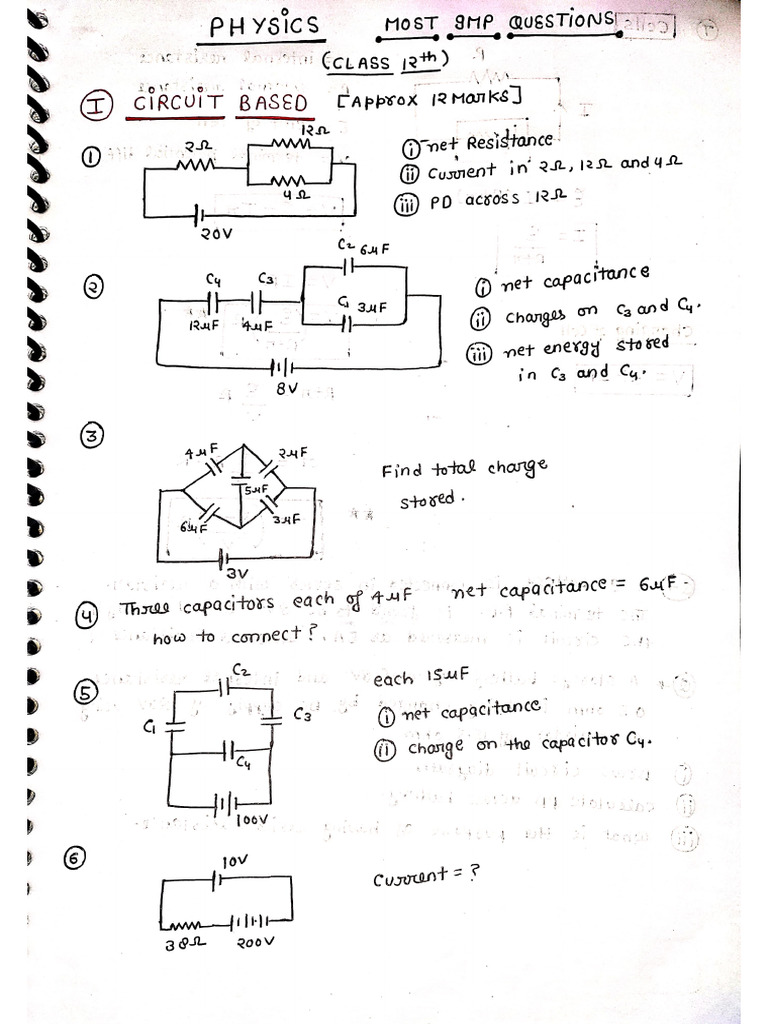 PHYSICS MOST IMP QUESTIONS
(CLASS 12th)
I CIRCUIT BASED [Approx 12 Marks]
1
2Ω
12Ω
4Ω
20V
i net Resistance
ii Current in 2Ω, 12Ω and 4Ω
iii PD across 12Ω
2
C4
12μF
C3
4μF
C2 6μF
C1 3μF
8V
i net capacitance
ii charges on C3 and C4.
iii net energy stored
in C3 and C4.
3
4μF
2μF
5μF
6μF
3μF
3V
Find total charge
stored.
4 Three capacitors each of 4μF net capacitance = 6μF.
how to connect?
5
C2
C1
C3
C4
100V
each 15μF
i net capacitance
ii charge on the capacitor C4.
6
10V
38Ω
200V
Current = ?